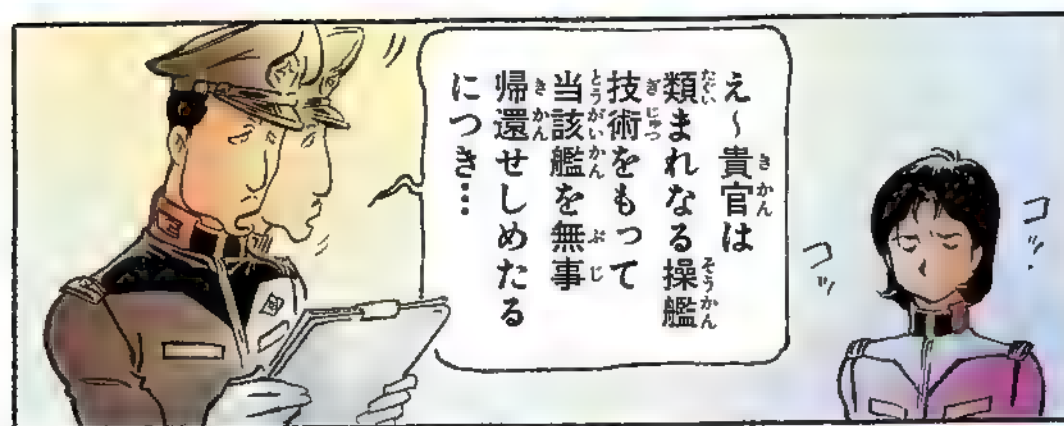 え～貴官は
類まれなる操艦
技術をもって
当該艦を無事
帰還せしめたる
につき…
コッ
コツ